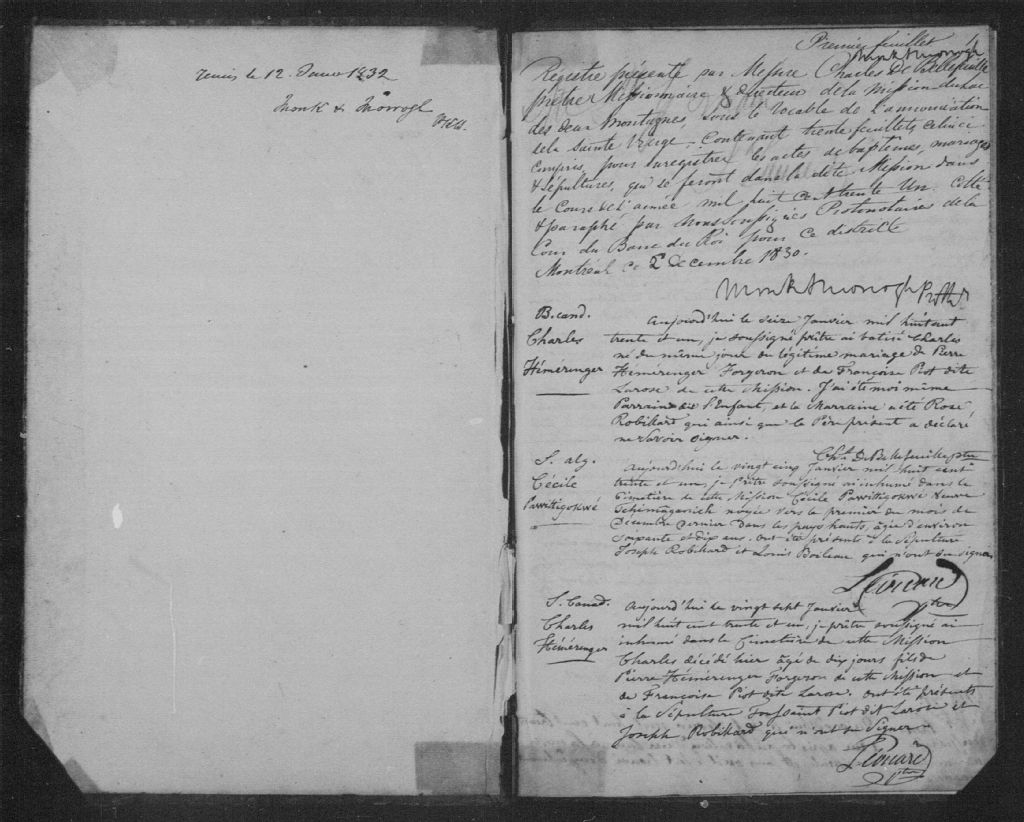 Remis le 12. Janvr 1832
Monk & Morrogh
Premier feuillet
Monk & Morrogh
Registre présenté par Messire Charles De Bellefeuille
prêtre Missionnaire & directeur de la Mission du Lac
des deux Montagnes, sous le vocable de l'annonciation
de la Sainte Vierge, Contenant trente feuillets celui ci
Compris, pour enregistrer les actes de baptêmes, mariages
& Sépultures, qui se feront dans la dite Mission dans
le Cours de l'année mil huit cent trente Un. Cotté
& paraphé par Nous soussignés Protonotaire de la
Cour du Banc du Roi pour ce district
Montréal ce Decembre 1830.
Monk & Morrogh
B. cand.
Charles
Héméringer
Aujourd'hui le seize Janvier mil huit cent
trente et un, je soussigné prêtre ai batisé Charles
né du même jour du légitime mariage de Pierre
Héméringer Forgeron et de Françoise Piot dite
Larose de cette Mission. J'ai été moi même
Parrain de l'Enfant, et la Marraine a été Rose
Robillard qui ainsi que le Père présent a déclaré
ne savoir signer.
Chs. De Bellefeuille ptre
S. alg.
Cécile
Pawitigokwé
Aujourd'hui le vingt cinq Janvier mil huit cent
trente et un, je Prêtre soussigné ai inhumé dans le
Cimetière de cette Mission Cécile Pawitigokwé Veuve
noyée vers le premier du mois de
Decembre dernier dans les pays hauts, âgée d'environ
soixante et dix ans. ont été présents à la sépulture
Joseph Robillard et Louis Boileau qui n'ont su signer
ptre
S. Canad.
Charles
Héméringer
Aujourd'hui le vingt sept Janvier
mil huit cent trente et un, je prêtre soussigné ai
inhumé dans le Cimetière de cette Mission
Charles décédé hier âgé de dix jours fils de
Pierre Héméringer Forgeron de cette Mission et
de Françoise Piot dite Larose. ont été présents
à la Sépulture Toussaint Piot dit Larose et
Joseph Robillard qui n'ont su Signer
ptre